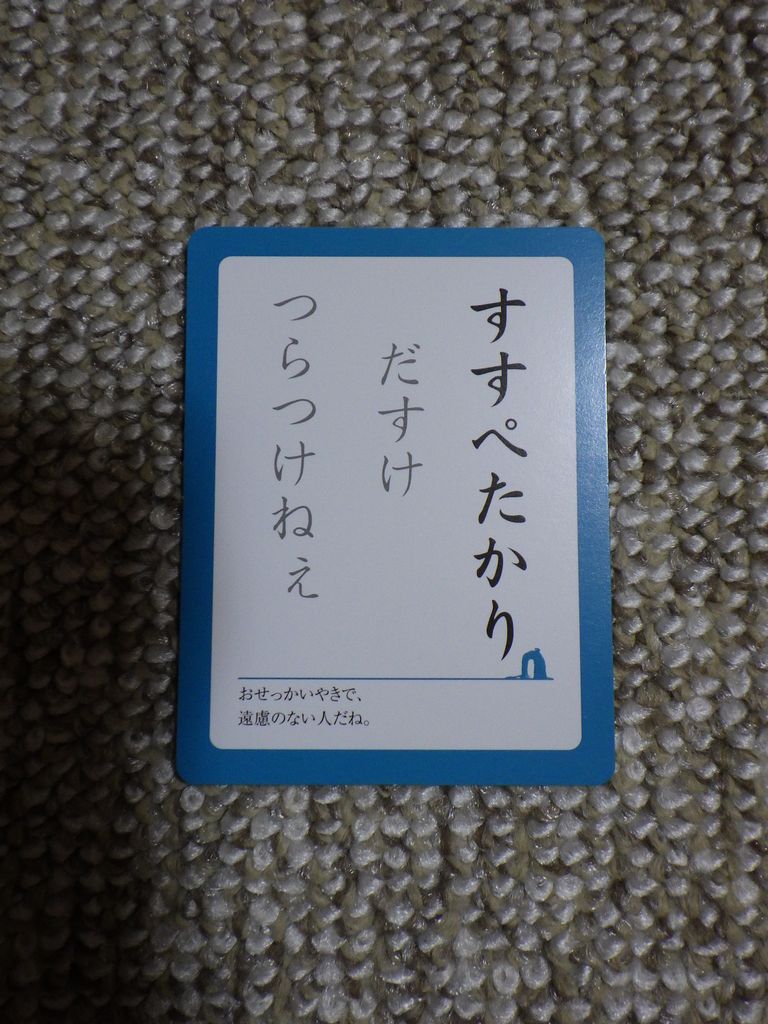 すすぺたかり
だすけ
つらつけねぇ
おせっかいやきで、
遠慮のない人だね。